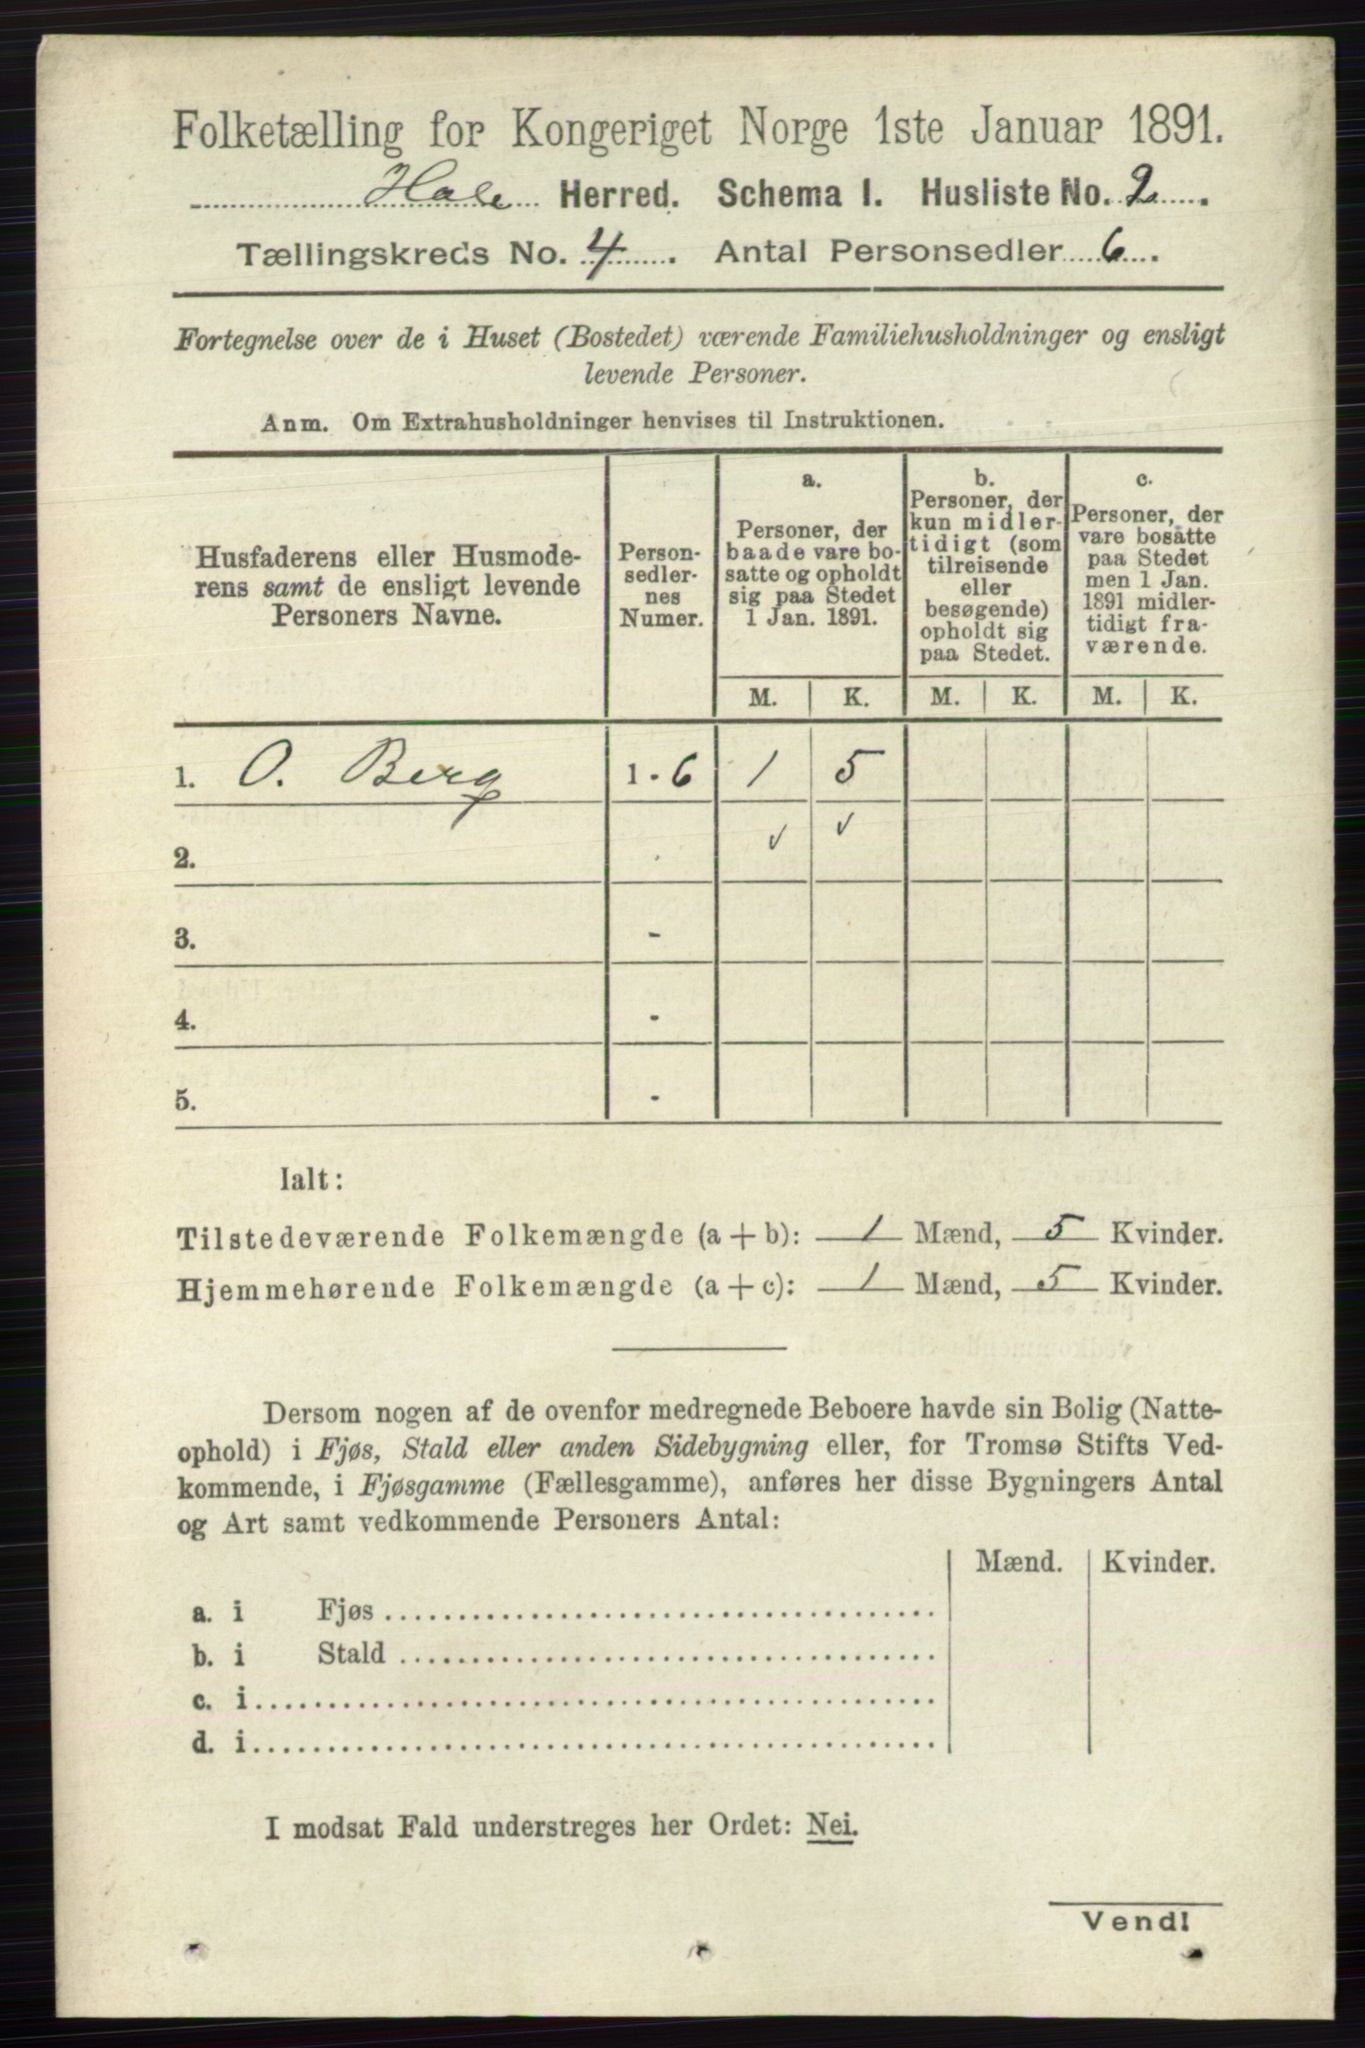 Folketælling for Kongeriget Norge 1ste Januar 1891.
Hole Herred. Schema I. Husliste No. 2.
Tællingskreds No. 4. Antal Personsedler 6.
Fortegnelse over de i Huset (Bostedet) værende Familiehusholdninger og ensligt
levende Personer.
Anm. Om Extrahusholdninger henvises til Instruktionen.
Husfaderens eller Husmode-
rens samt de ensligt levende
Personers Navne.
Person-
sedler-
nes
Numer.
a.
Personer, der
baade vare bo-
satte og opholdt
sig paa Stedet
1 Jan. 1891.
b.
Personer, der
kun midler-
tidigt (som
tilreisende
eller
besøgende)
opholdt sig
paa Stedet.
c.
Personer, der
vare bosatte
paa Stedet
men 1 Jan.
1891 midler-
tidigt fra-
værende.
M. K. M. K. M. K.
1. O. Berg 1 - 6 1 5
2. ✓ ✓
3. -
4. -
5. -
Ialt:
Tilstedeværende Folkemængde (a + b): 1 Mænd, 5 Kvinder.
Hjemmehørende Folkemængde (a + c): 1 Mænd, 5 Kvinder.
Dersom nogen af de ovenfor medregnede Beboere havde sin Bolig (Natte-
ophold) i Fjøs, Stald eller anden Sidebygning eller, for Tromsø Stifts Ved-
kommende, i Fjøsgamme (Fællesgamme), anføres her disse Bygningers Antal
og Art samt vedkommende Personers Antal:
Mænd. Kvinder.
a. i Fjøs
b. i Stald
c. i
d. i
I modsat Fald understreges her Ordet: Nei.
Vend!